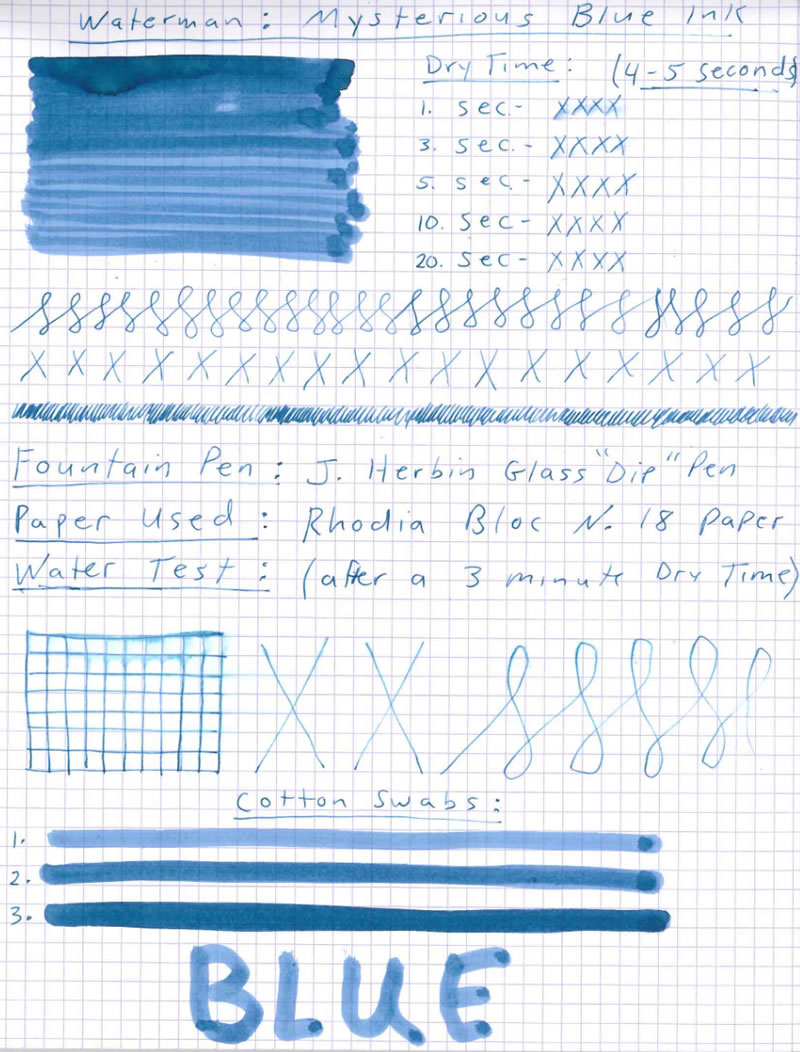 Waterman: Mysterious Blue Ink
Dry Time: (4-5 seconds)
1. sec- XXXX
3. sec.- XXXX
5. sec.- XXXX
10. sec- XXXX
20. sec- XXXX
X X X X X X X X X X X X X X X X X X
Fountain Pen: J. Herbin Glass "Dip" Pen
Paper Used: Rhodia Bloc N. 18 paper
Water Test: (after a 3 minute Dry Time)
X X
Cotton Swabs:
1.
2.
3.
BLUE